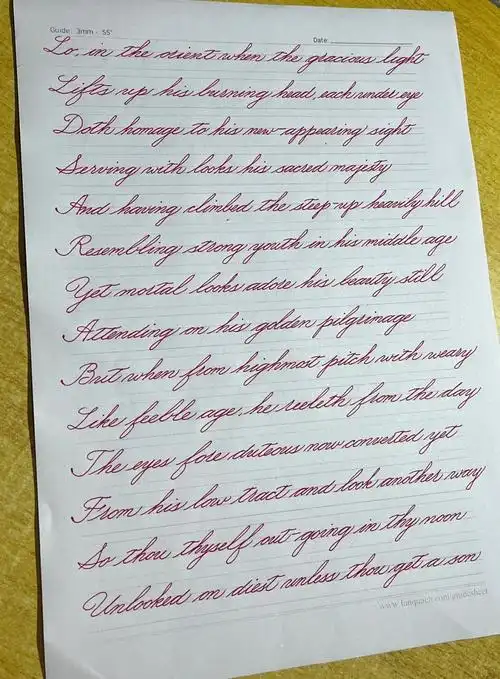 Guide: 3mm - 55°
Date:
Lo, in the orient when the gracious light
Lifts up his burning head, each under eye
Doth homage to his new-appearing sight
Serving with looks his sacred majesty
And having climbed the steep-up heavily hill
Resembling strong youth in his middle age
Yet mortal looks adore his beauty still
Attending on his golden pilgrimage
But when from highmost pitch with weary
Like feeble age, he reeleth from the day
The eyes fore duteous now converted yet
From his low tract and look another way
So thou thyself out-going in thy noon
Unlooked on diest unless thou get a son
www.lanquach.com/guidesheet